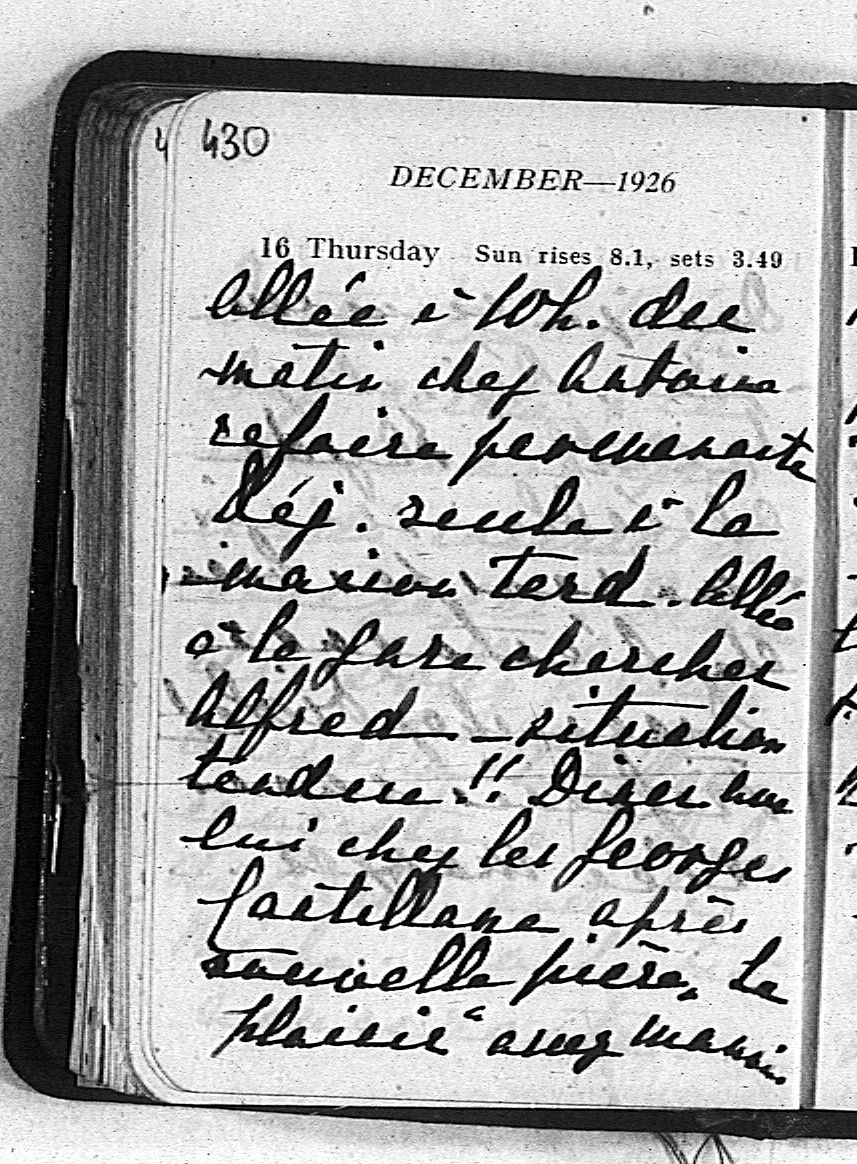 430
DECEMBER—1926
16 Thursday Sun rises 8.1, sets 3.49
Allée à 10h. du
matin chez Antoine
refaire permanente
Déj. seule à la
maison tard. Allée
à la gare chercher
Alfred – situation
tendue!! Diner avec
lui chez les Georges
Castellane après
nouvelle pièce „Le
plaisir“ assez mauvais